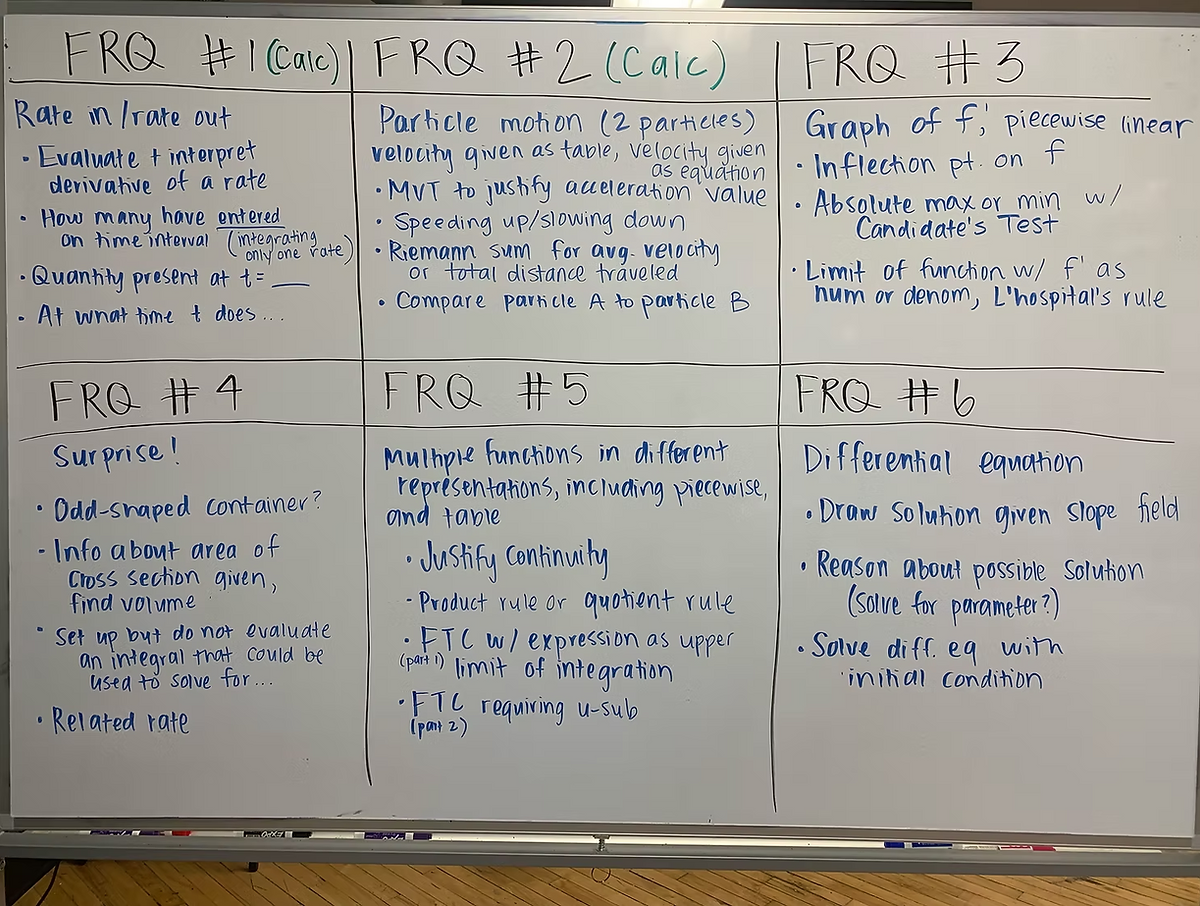 FRQ #1 (Calc)
Rate in/rate out
• Evaluate + interpret
derivative of a rate
• How many have entered
on time interval (integrating
only one rate)
• Quantity present at t = __
• At what time t does...
FRQ #2 (Calc)
Particle motion (2 particles)
velocity given as table, velocity given
as equation
• MVT to justify acceleration value
• Speeding up/slowing down
• Riemann sum for avg. velocity
or total distance traveled
• Compare particle A to particle B
FRQ #3
Graph of f', piecewise linear
• Inflection pt. on f
• Absolute max or min w/
Candidate's Test
• Limit of function w/ f' as
num or denom, L'hospital's rule
FRQ #4
Surprise!
• Odd-shaped container?
- Info about area of
cross section given,
find volume
• Set up but do not evaluate
an integral that could be
used to solve for...
• Related rate
FRQ #5
Multiple functions in different
representations, including piecewise,
and table
• Justify Continuity
- Product rule or quotient rule
• FTC w/ expression as upper
(part 1) limit of integration
• FTC requiring u-sub
(part 2)
FRQ #6
Differential equation
• Draw solution given slope field
• Reason about possible solution
(solve for parameter?)
• Solve diff. eq with
initial condition